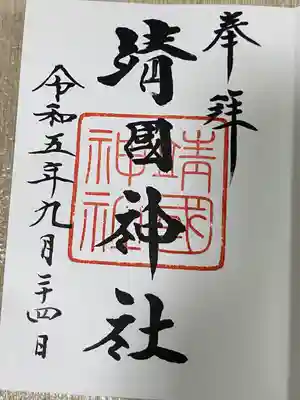 奉拜
靖國神社
靖國神社
令和五年九月二十四日